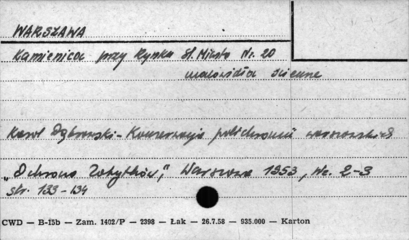 WARSZAWA
Kamienica przy Rynku St. Miasta Nr. 20
malowidła ścienne
Karol Dąbrowski - Konserwacja polichromii warszawskich
„Ochrona Zabytków," Warszawa 1953, Nr. 2-3
str. 133-134
CWD — B-15b — Zam. 1402/P — 2398 — Łak — 26.7.58 — 935.000 — Karton